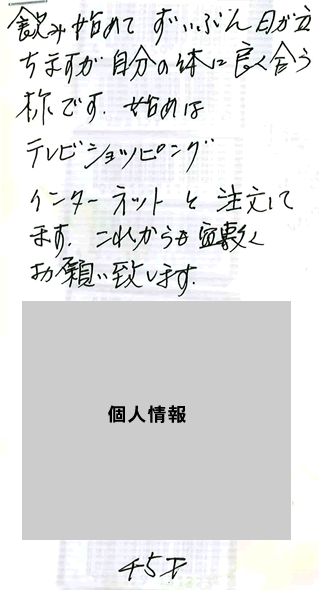 飲み始めて ずいぶん日が立
ちますが 自分の体に良く合う
様です. 始めは
テレビショッピング
インターネットと 注文して
ます. これからも宜敷く
お願い致します.
個人情報
45才